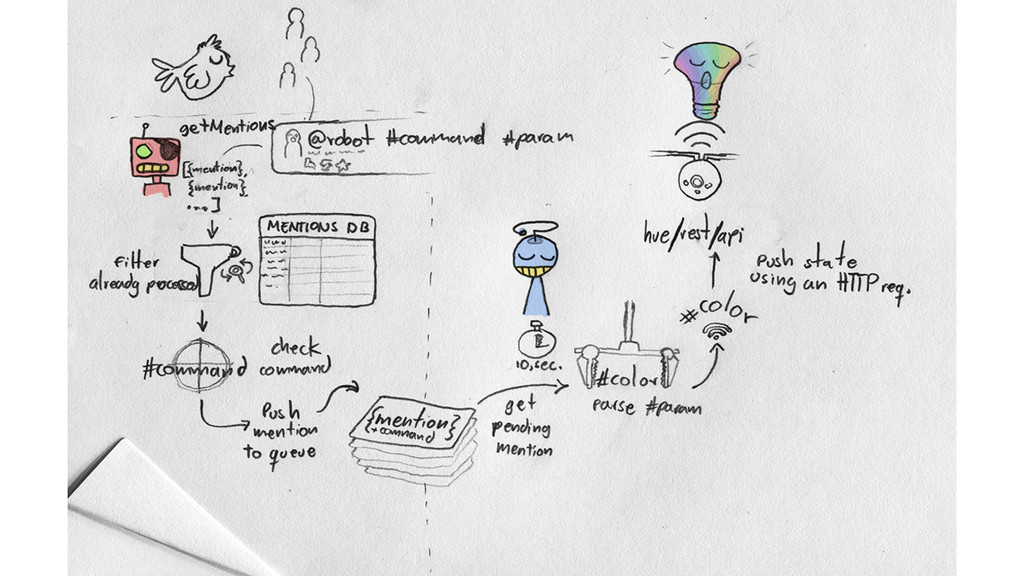 getMentions
@robot #command #param
[{mention},
{mention}
...]
MENTIONS DB
Filter
already processed
#command
check
command
Push
mention
to queue
{mention}
{+command}
10,sec.
get
pending
mention
#color
parse #param
#color
hue/rest/api
Push state
using an HTTP req.